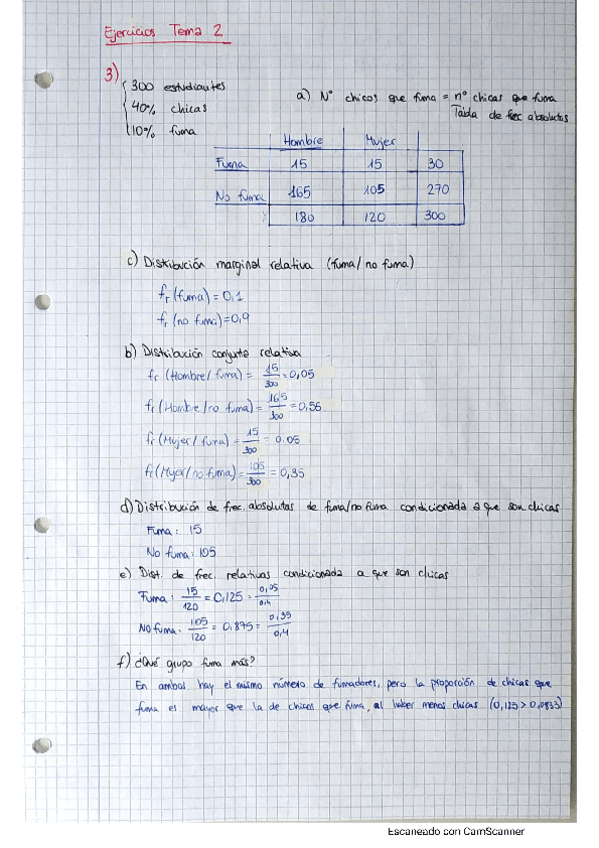 Ejercicios Tema 2
3)
300 estudiantes
40% chicas
10% fuma
a) Nº chicos que fuma = nº chicas que fuma
Tabla de frec absolutas
Hombre Mujer
Fuma 15 15 30
No fuma 165 105 270
180 120 300
c) Distribución marginal relativa (fuma/ no fuma)
fr (fuma) = 0,1
fr (no fuma) = 0,9
b) Distribución conjunta relativa
fr (Hombre/ fuma) = 15/300 = 0,05
fr (Hombre/no fuma) = 165/300 = 0,55
fr (Mujer/ fuma) = 15/300 = 0.05
fr (Mujer/no fuma) = 105/300 = 0,35
d) Distribución de frec. absolutas de fuma/no fuma condicionada a que son chicas
Fuma: 15
No fuma: 105
e) Dist. de frec. relativas condicionada a que son chicas
Fuma: 15/120 = 0,125 = 0,05/0,4
No fuma: 105/120 = 0,875 = 0,35/0,4
f) ¿Qué grupo fuma más?
En ambos hay el mismo número de fumadores, pero la proporción de chicas que
fuma es mayor que la de chicos que fuma, al haber menos chicas (0,125 > 0,0833)
Escaneado con CamScanner